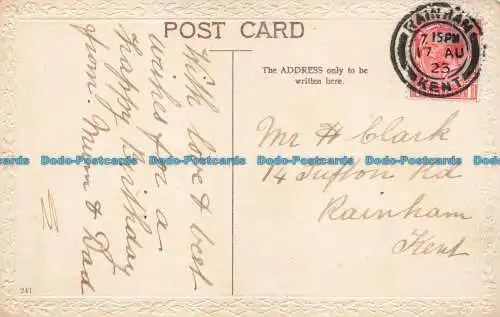 POST CARD
With love & best
wishes for a
Happy Birthday
from. Mum & Dad
The ADDRESS only to be
written here.
RAINHAM
7.15PM
17 AU
23
KENT
Mr H Clark
14 Sufton Rd
Rainham
Kent
241
Dodo-Postcards Dodo-Postcards Dodo-Postcards Dodo-Postcards
Dodo-Postcards Dodo-Postcards Dodo-Postcards Dodo-Postcards